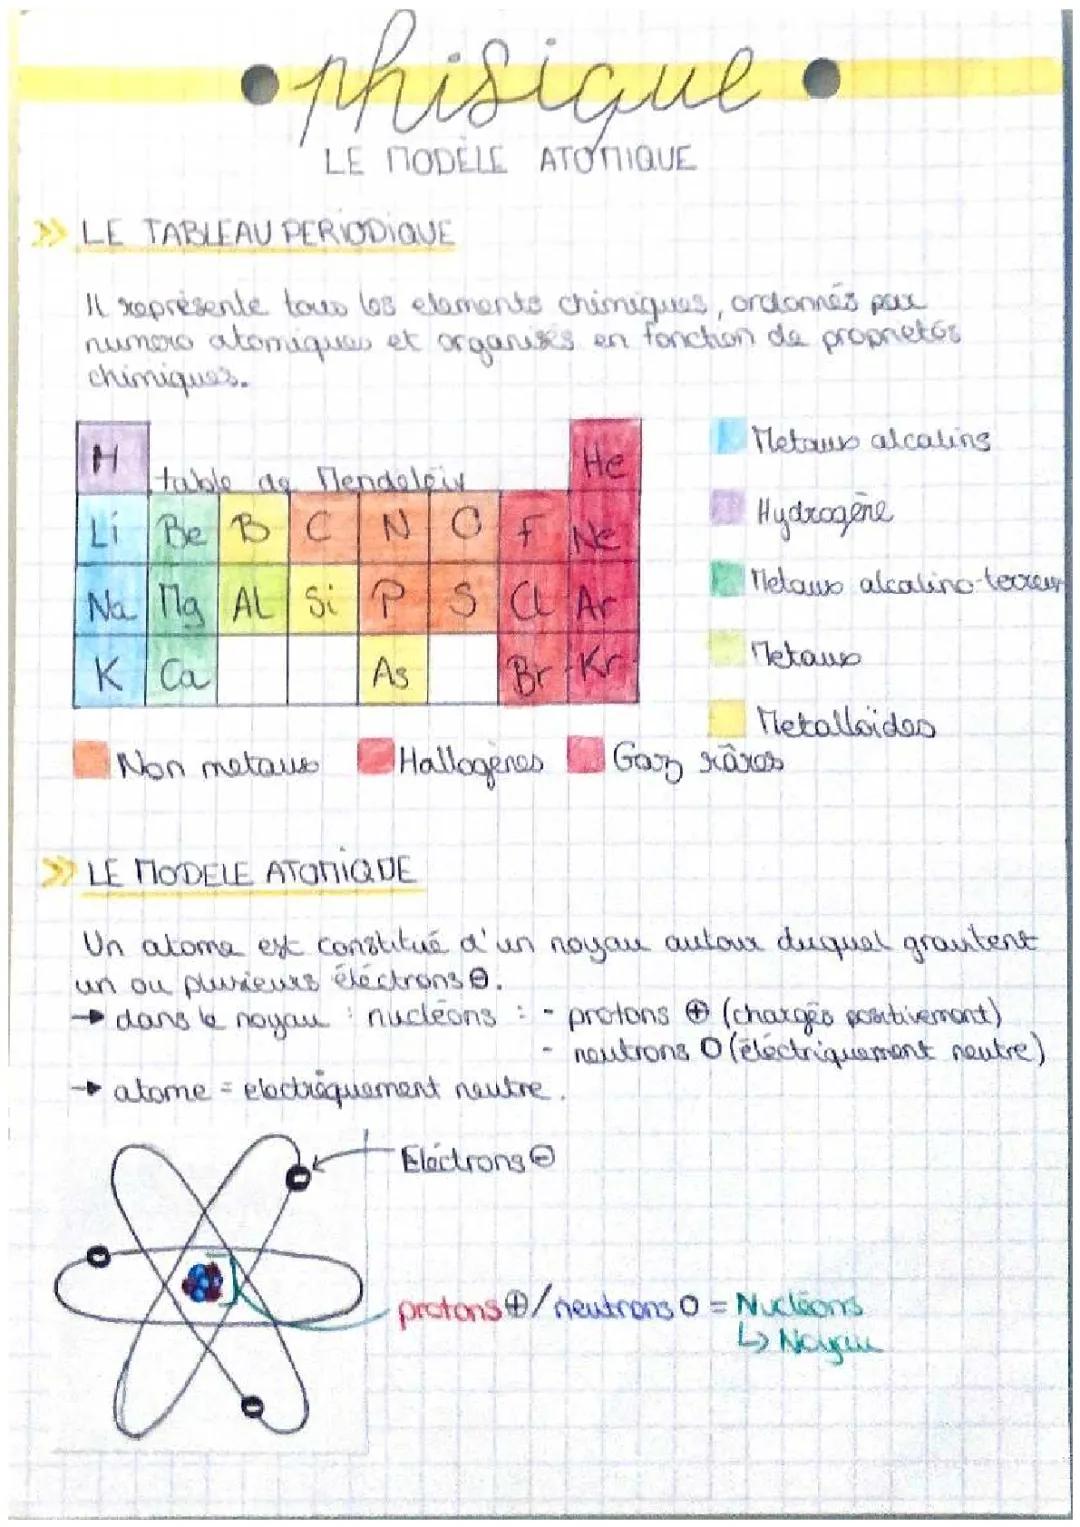 phisique
LE MODÈLE ATOMIQUE
>> LE TABLEAU PERIODIQUE
Il représente tous les elements chimiques, ordonnés par
numero atomiques et organisés en fonction de proprietés
chimiques.
H He
table de Mendeleïv
Li Be B C N O F Ne
Na Mg AL Si P S Cl Ar
K Ca As Br Kr
Metaux alcalins
Hydrogène
Metaux alcalino-terreux
Metaux
Metalloïdes
Non metaux Hallogènes Gaz râres
>> LE MODELE ATOMIQUE
Un atome est constitué d'un noyau autour duquel gravitent
un ou plusieurs éléctrons ⊖.
→ dans le noyau : nucléons : - protons ⊕ (chargés positivement)
- neutrons O (éléctriquement neutre)
→ atome = electriquement neutre.
Eléctrons ⊖
protons ⊕ / neutrons O = Nucléons
↳ Noyau